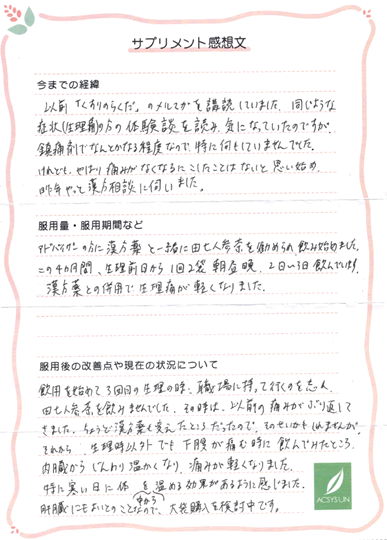 サプリメント感想文
今までの経緯
以前「くすりのらくだ」のメルマガを講読していました。同じような
症状(生理痛)の方の体験談を読み、気になっていたのですが、
鎮痛剤でなんとかなる程度なので、特に何もしていませんでした。
けれども、やはり痛みがなくなるにこしたことはないと思い始め、
昨年やっと漢方相談に伺いました。
服用量・服用期間など
アドバイザーの方に漢方薬と一緒に田七人参茶を勧められ飲み始めました。
この4カ月間、生理前日から1回2袋 朝昼晩、2日〜3日飲んでいます。
漢方薬との併用で生理痛が軽くなりました。
服用後の改善点や現在の状況について
飲用を始めて3回目の生理の時、職場に持って行くのを忘れ、
田七人参茶を飲みませんでした。その時は、以前の痛みがぶり返して
きました。ちょうど漢方薬も変えたところだったので、そのせいかもしれませんが。
それから、生理時以外でも下腹が痛む時に飲んでみたところ、
内臓からじんわり温かくなり、痛みが軽くなりました。
特に寒い日に体を温める効果があるように感じました。
中から
肝臓にもよいとのことなので、大袋購入を検討中です。
ACSYSUN